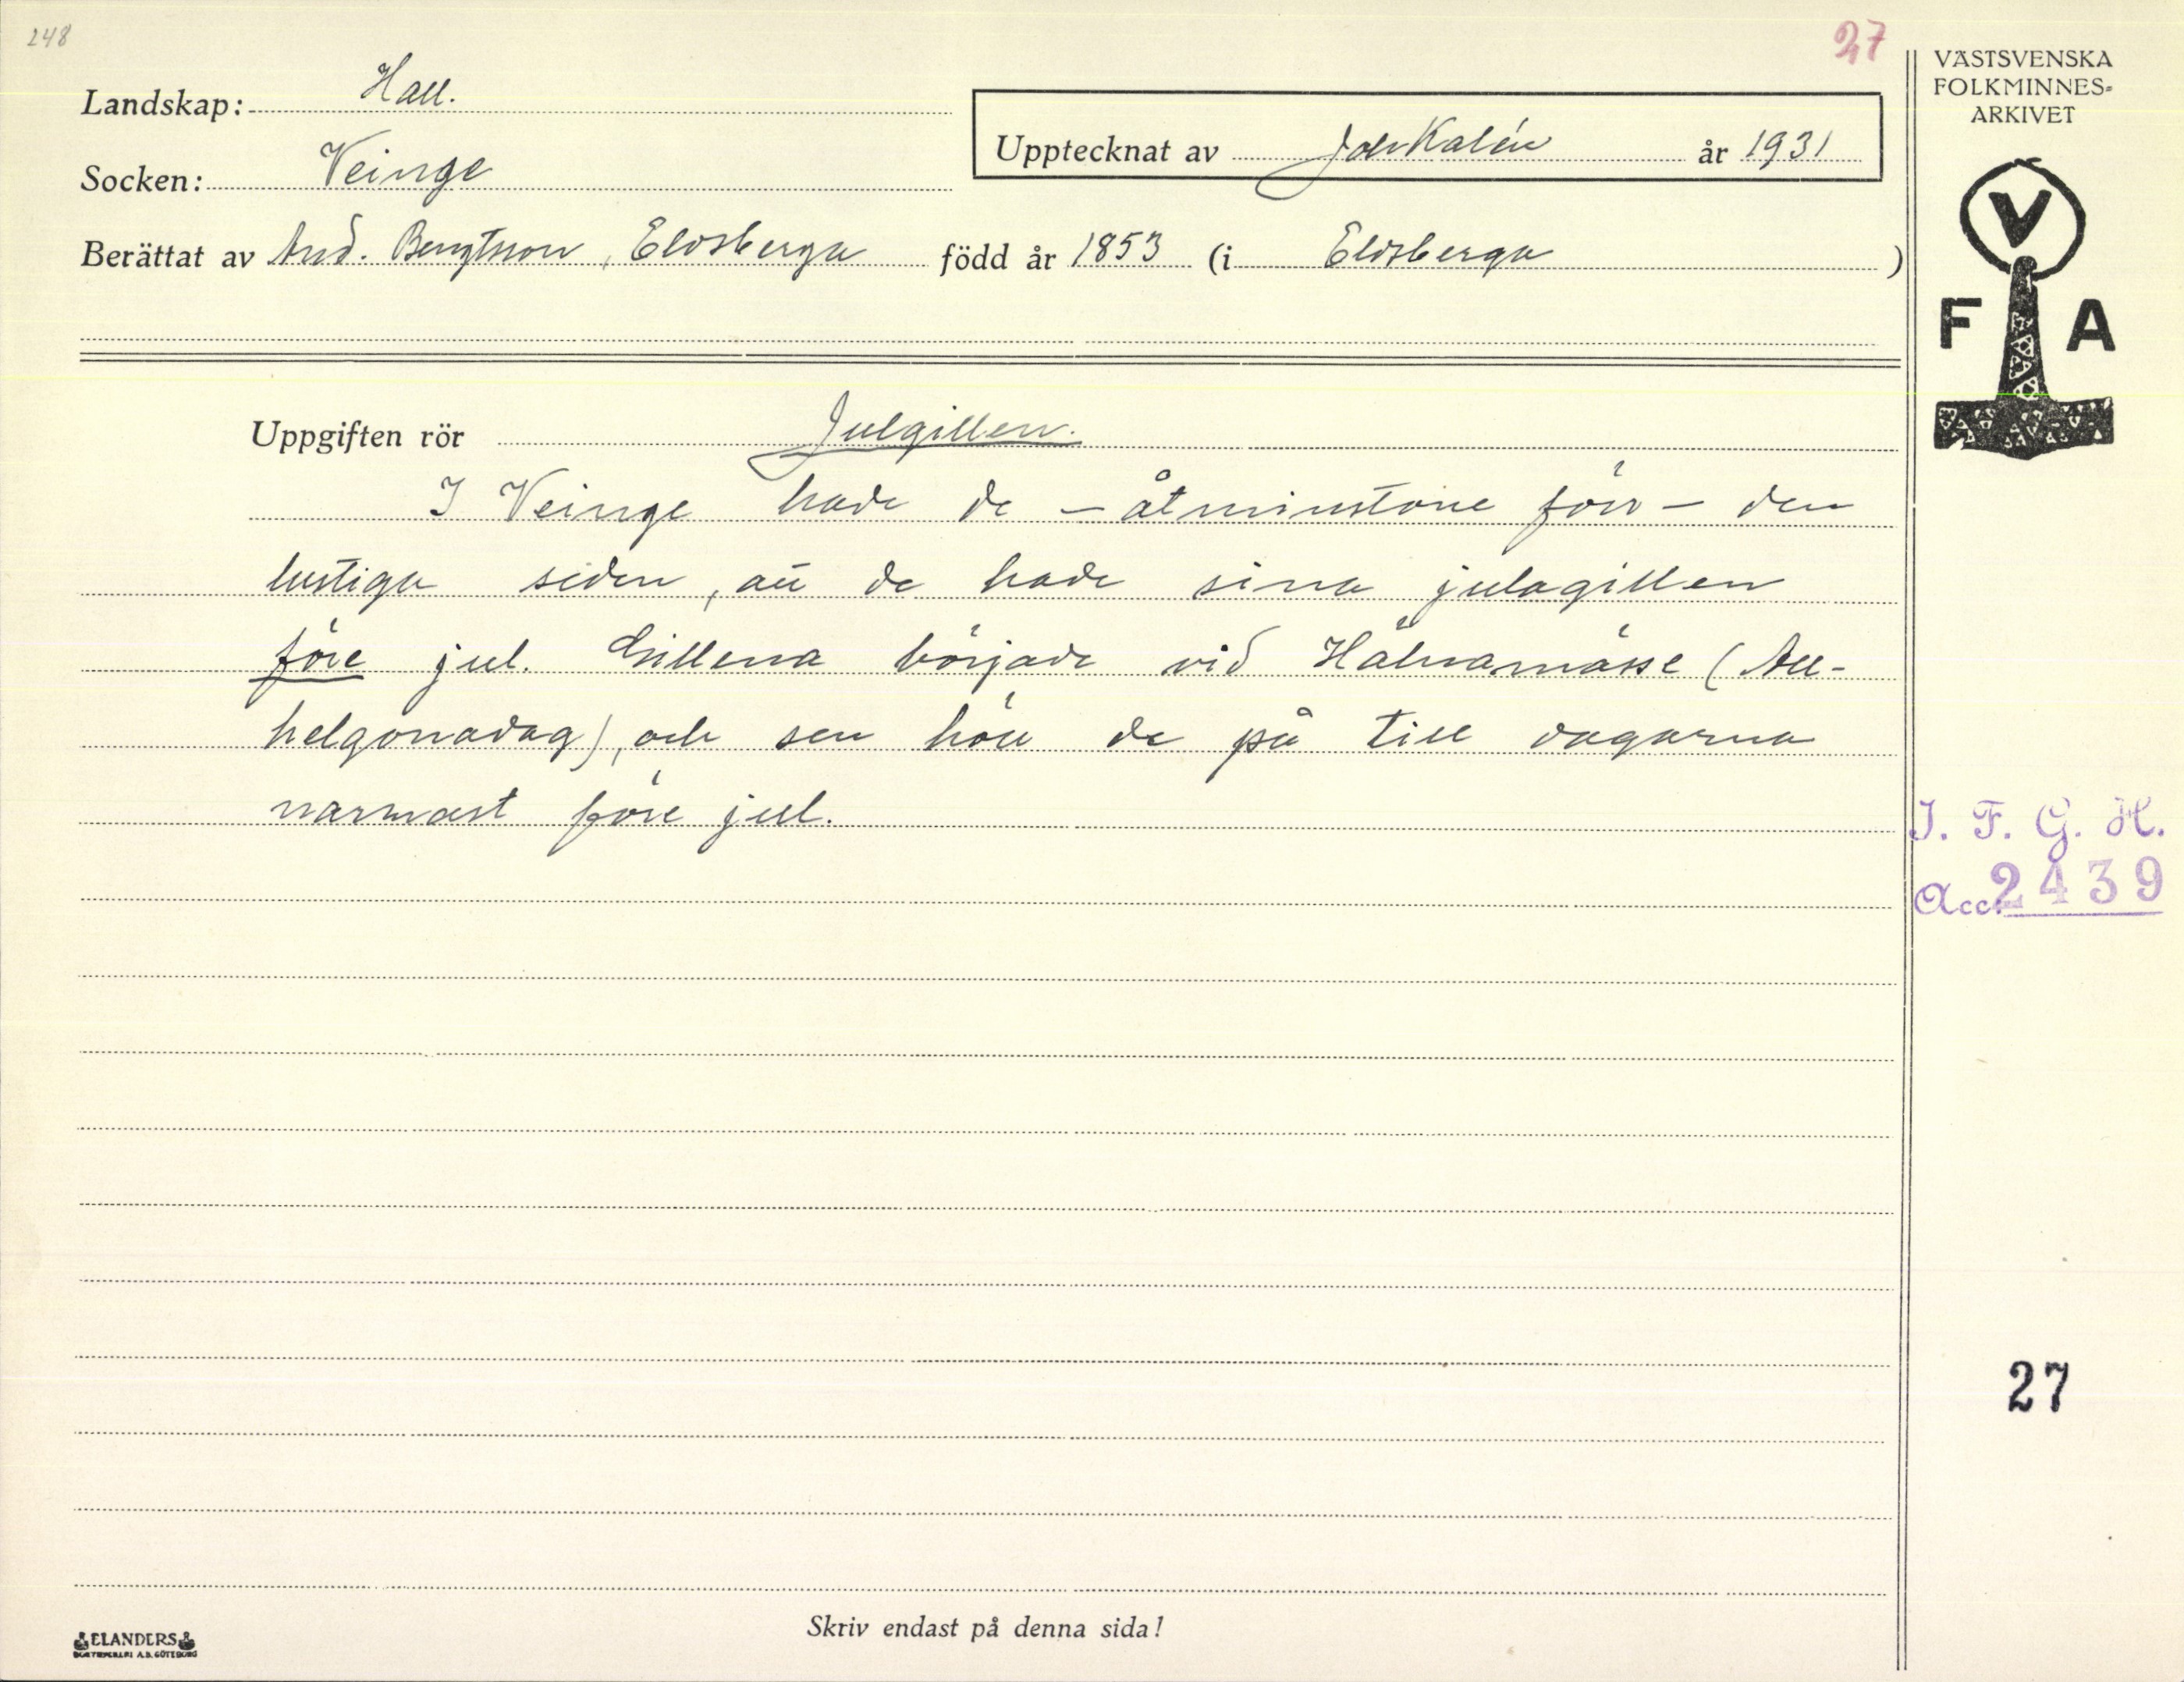 248
27
Landskap: Hall.
Socken: Veinge
Upptecknat av Joh Kalén år 1931
Berättat av And. Bengtsson, Eldsberga född år 1853 (i Eldsberga )
VÄSTSVENSKA
FOLKMINNES-
ARKIVET
V
F A
Uppgiften rör Julgillen.
I Veinge hade de – åtminstone förr – den
lustiga seden, att de hade sina julagillen
före jul. Gillena började vid Hälnamässe (All-
helgonadag), och sen höll de på till dagarna
närmast före jul.
I. F. G. H.
Acc. 2439
27
Skriv endast på denna sida!
ELANDERS
BOKTRYCKERI A.B. GÖTEBORG